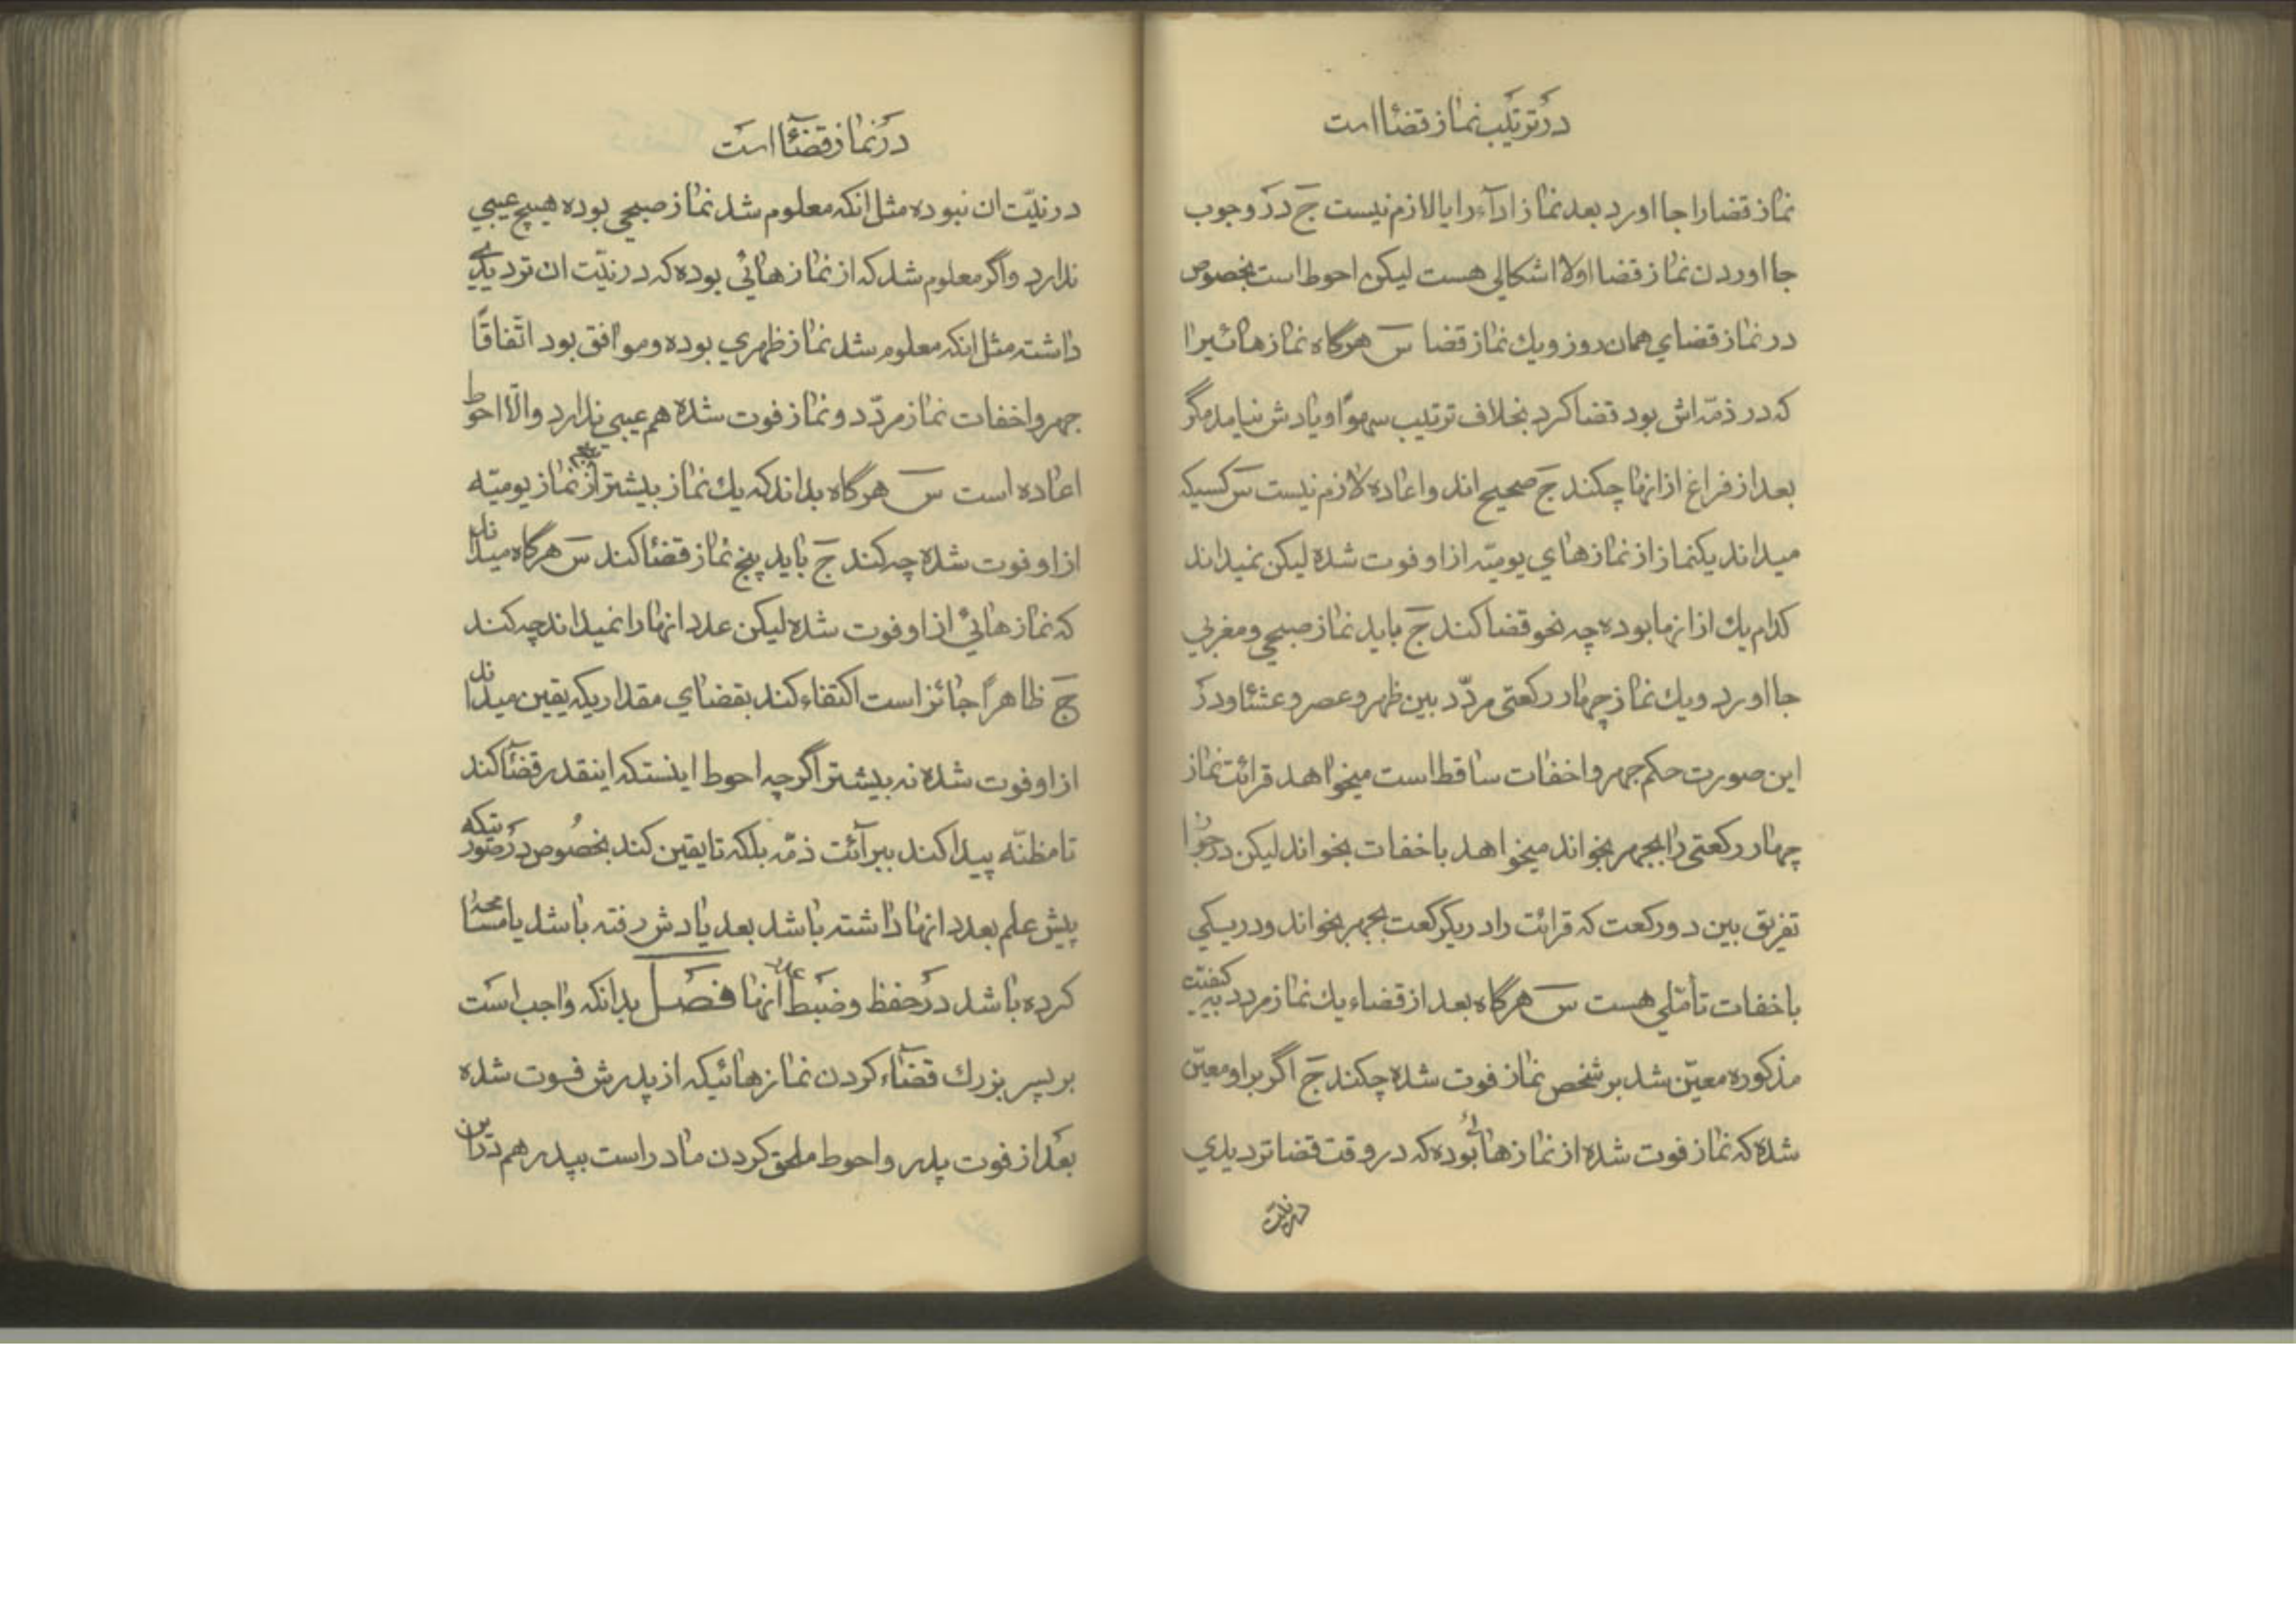 در ترتیب نماز قضا است
نماز قضا را جا اورد بعد نماز ادآء را یا لازم نیست ج در وجوب
جا اوردن نماز قضا اولا اشکالی هست لیکن احوط است بخصوص
در نماز قضای همان روز و یك نماز قضا س هرگاه نمازهائیرا
که در ذمّه اش بود قضا کرد بخلاف ترتیب سهوًا و یادش نیامد مگر
بعد از فراغ از انها چکند ج صحیح اند و اعاده لازم نیست س کسیکه
میداند یکنماز از نمازهای یومیّه از او فوت شده لیکن نمیداند
کدام یك از انها بوده چه نحو قضا کند ج باید نماز صبحی و مغربی
جا اورد و یك نماز چهار رکعتی مردّد بین ظهر و عصر و عشا و در
این صورت حکم جهر و اخفات ساقط است میخواهد قرائت نماز
چهار رکعتی را بجهر بخواند میخواهد باخفات بخواند لیکن در جواز
تفریق بین دو رکعت که قرائت را در یکرکعت بجهر بخواند و در یکی
باخفات تأمّلی هست س هرگاه بعد از قضاء یك نماز مردد به کیفیّت
مذکوره معیّن شد بر شخص نماز فوت شده چکند ج اگر بر او معیّن
شده که نماز فوت شده از نمازهائی بوده که در وقت قضا تردیدی
در نیّت
در نماز قضآ است
در نیّت ان نبوده مثل انکه معلوم شد نماز صبحی بوده هیچ عیبی
ندارد و اگر معلوم شد که از نمازهائی بوده که در نیّت ان تردیدی
داشته مثل انکه معلوم شد نماز ظهری بوده و موافق بود اتّفاقًا
جهر و اخفات نماز مردّد و نماز فوت شده هم عیبی ندارد و الّا احوط
اعاده است س هرگاه بداند که یك نماز بیشتر از نماز یومیّه
از او فوت شده چه کند ج باید پنج نماز قضا کند س هرگاه میداند
که نمازهائی از او فوت شده لیکن عدد انها را نمیداند چه کند
ج ظاهرًا جائز است اکتفاء کند بقضای مقداریکه یقین میداند
از او فوت شده نه بیشتر اگر چه احوط اینستکه اینقدر قضآ کند
تا مظنّه پیدا کند ببرآئت ذمّه بلکه تا یقین کند بخصوص در صورتیکه
پیش علم بعدد انها داشته باشد بعد یادش رفته باشد یا مسامحه
کرده باشد در حفظ و ضبط عدد انها فصل بدانکه واجب است
بر پسر بزرك قضآء کردن نمازهائیکه از پدرش فوت شده
بعد از فوت پدر و احوط ملحق کردن مادر است بپدر هم در این